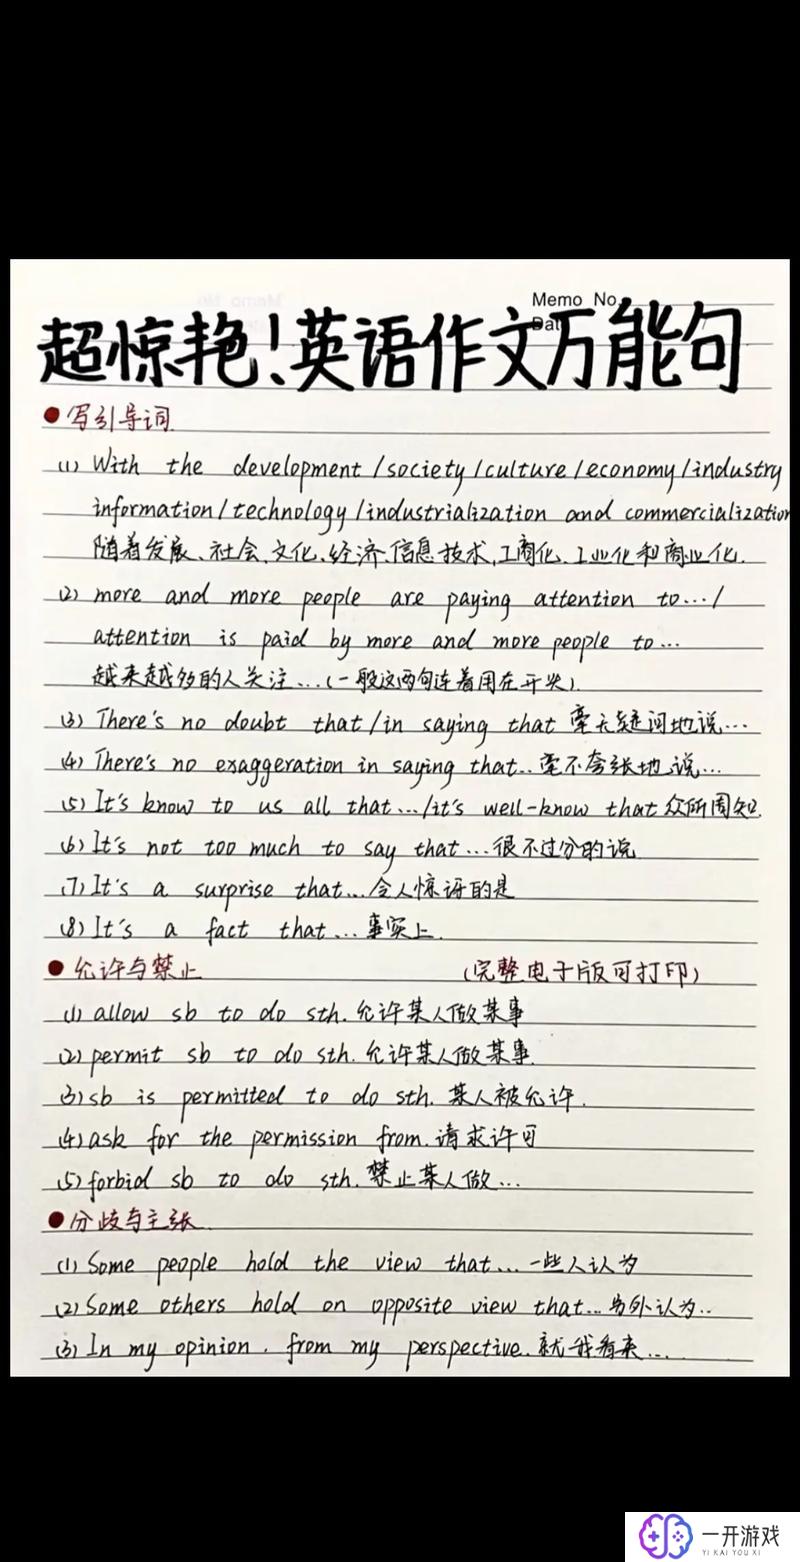 Memo No.
Dat
/
超惊艳!英语作文万能句
写引导词
(1) With the development /society/culture/economy/industry
information/technology/industrialization and commercialization
随着发展、社会、文化、经济、信息技术,工商化、工业化和商业化.
(2) more and more people are paying attention to.../
attention is paid by more and more people to...
越来越多的人关注...(一般这两句连着用在开头).
(3) There's no doubt that/in saying that 毫无疑问地说...
(4) There's no exaggeration in saying that..毫不夸张地说...
(5) It's know to us all that.../it's well-know that 众所周知.
(6) It's not too much to say that...很不过分的说
(7) It's a surprise that...令人惊讶的是
(8) It's a fact that...事实上.
允许与禁止 (完整电子版可打印)
(1) allow sb to do sth.允许某人做某事
(2) permit sb to do sth.允许某人做某事.
(3) sb is permitted to do sth.某人被允许.
(4) ask for the permission from.请求许可
(5) forbid sb to do sth.禁止某人做...
分歧与主张
(1) Some people hold the view that...一些人认为
(2) Some others hold on opposite view that...另外认为..
(3) In my opinion. from my perspective.就我看来...
一开游戏
YI KAI YOU XI